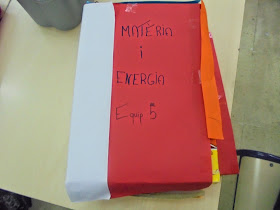 MATÈRIA
i
ENERGIA
Equip 5